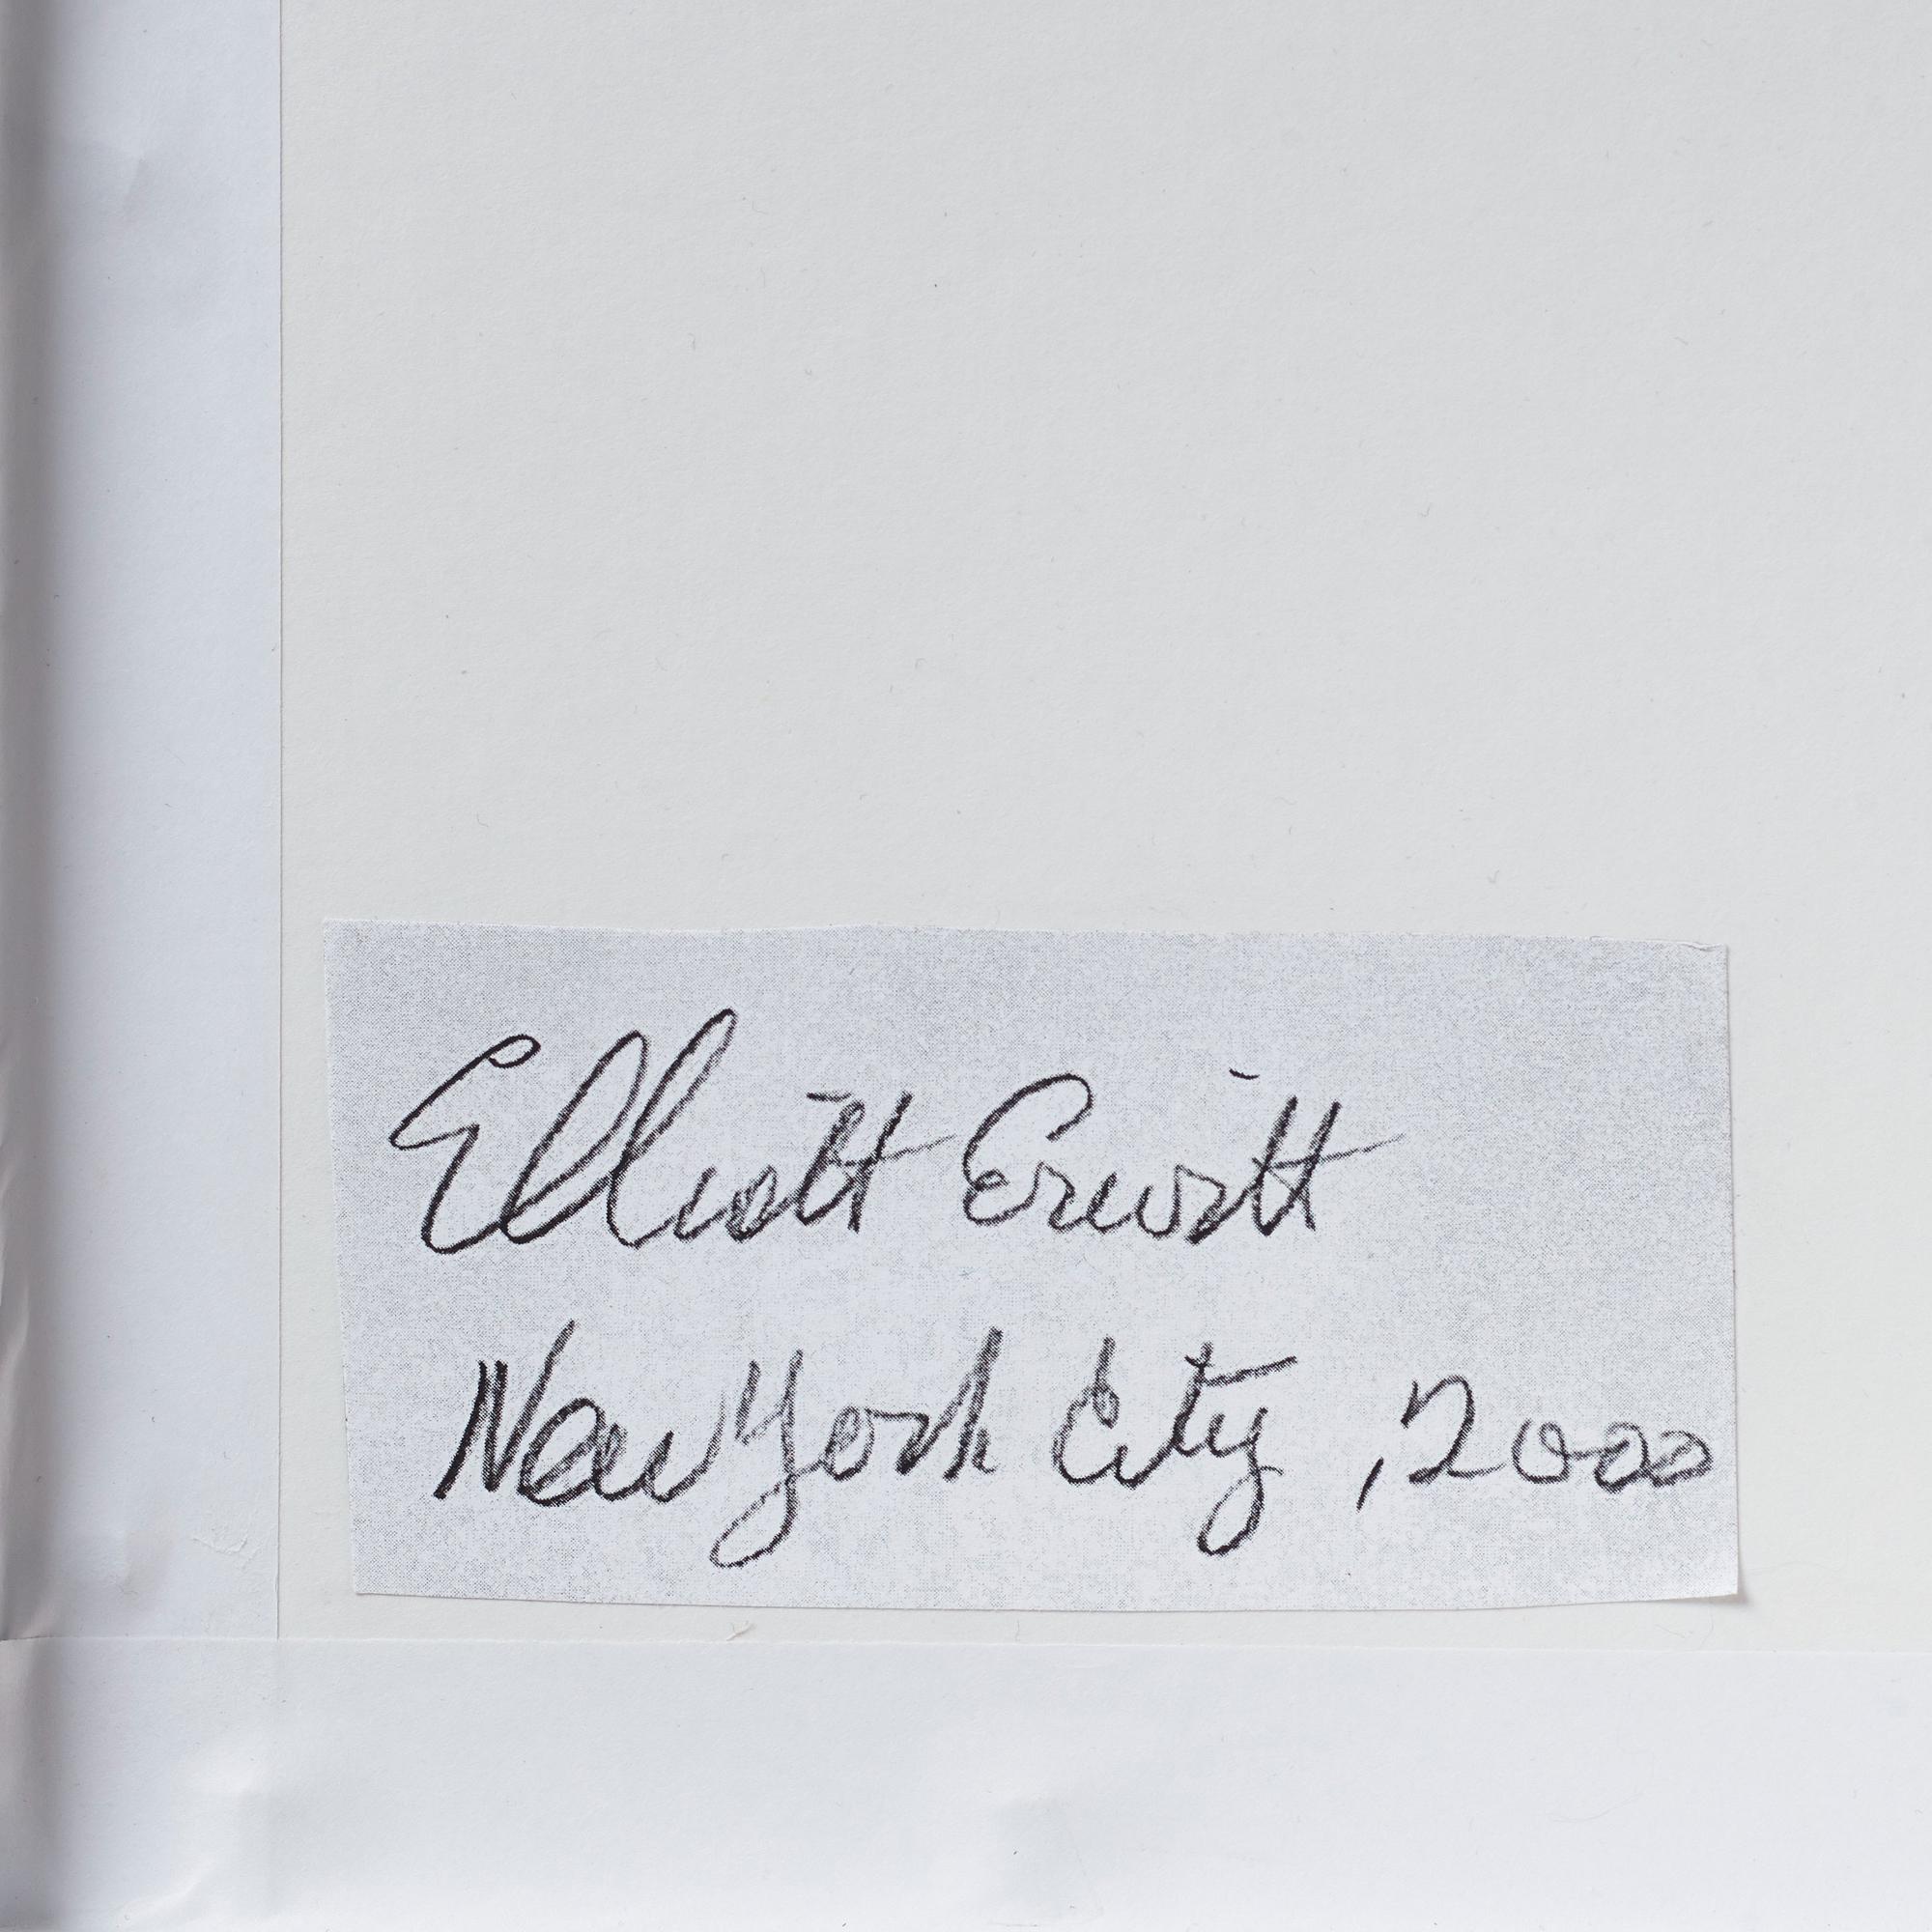 Elliott Erwitt
New York City, 2000